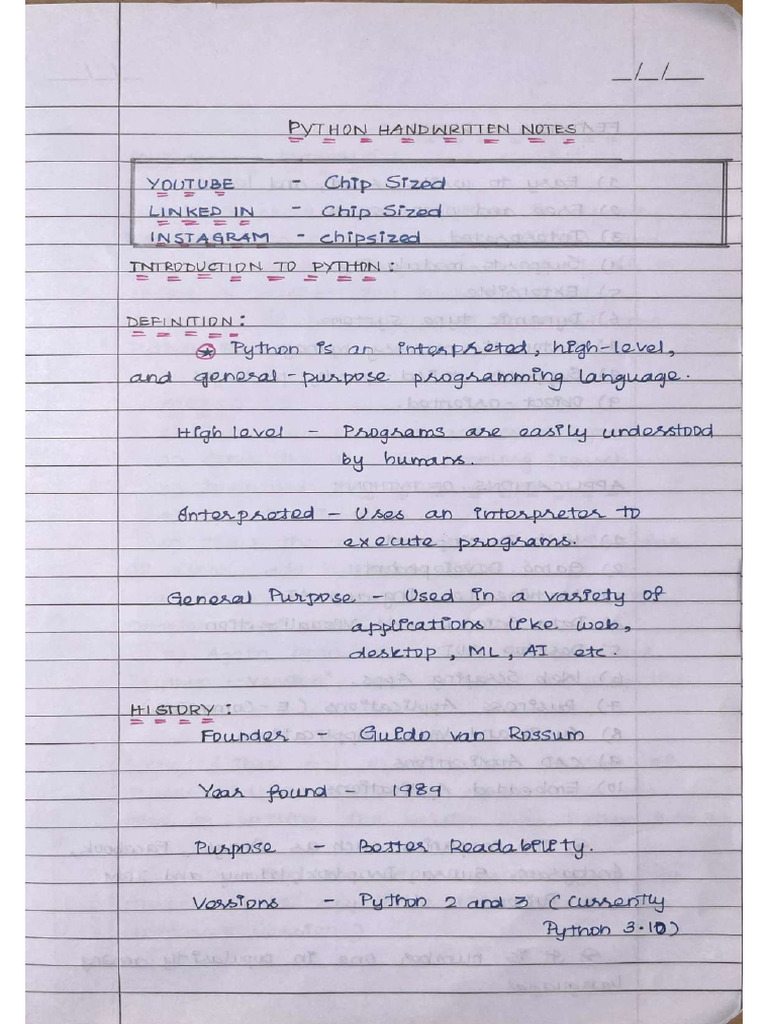 __/__/____
PYTHON HANDWRITTEN NOTES
YOUTUBE - Chip Sized
LINKED IN - Chip Sized
INSTAGRAM - chipsized
INTRODUCTION TO PYTHON:
DEFINITION:
Python is an interpreted, high-level,
and general-purpose programming language.
High level - Programs are easily understood
by humans.
Interpreted - Uses an interpreter to
execute programs.
General Purpose - Used in a variety of
applications like web,
desktop, ML, AI etc.
HISTORY:
Founder - Guido van Rossum
Year found - 1989
Purpose - Better Readability.
Versions - Python 2 and 3 (Currently
Python 3.10)